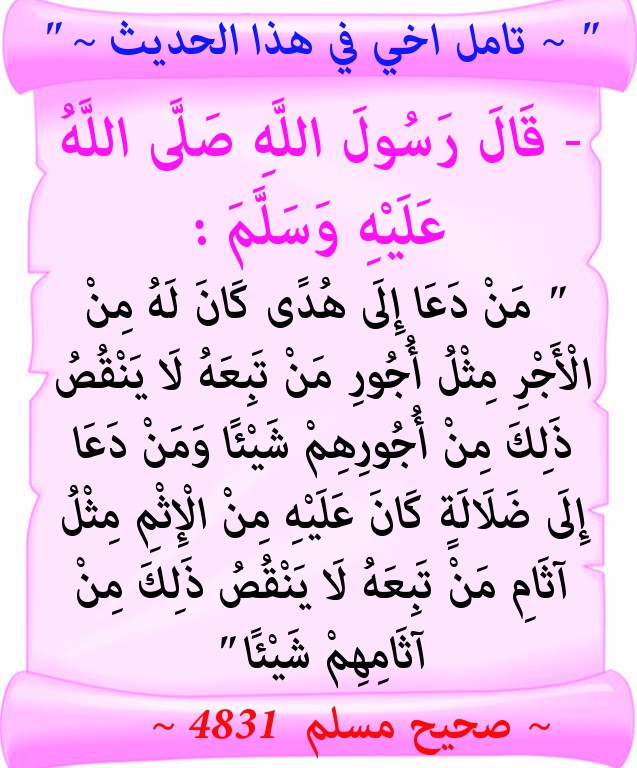 " ~ تامل اخي في هذا الحديث ~ "
- قَالَ رَسُولَ اللَّهِ صَلَّى اللَّهُ
عَلَيْهِ وَسَلَّمَ :
" مَنْ دَعَا إِلَى هُدًى كَانَ لَهُ مِنْ
الْأَجْرِ مِثْلُ أُجُورِ مَنْ تَبِعَهُ لَا يَنْقُصُ
ذَلِكَ مِنْ أُجُورِهِمْ شَيْئًا وَمَنْ دَعَا
إِلَى ضَلَالَةٍ كَانَ عَلَيْهِ مِنْ الْإِثْمِ مِثْلُ
آثَامِ مَنْ تَبِعَهُ لَا يَنْقُصُ ذَلِكَ مِنْ
آثَامِهِمْ شَيْئًا "
~ صحيح مسلم 4831 ~